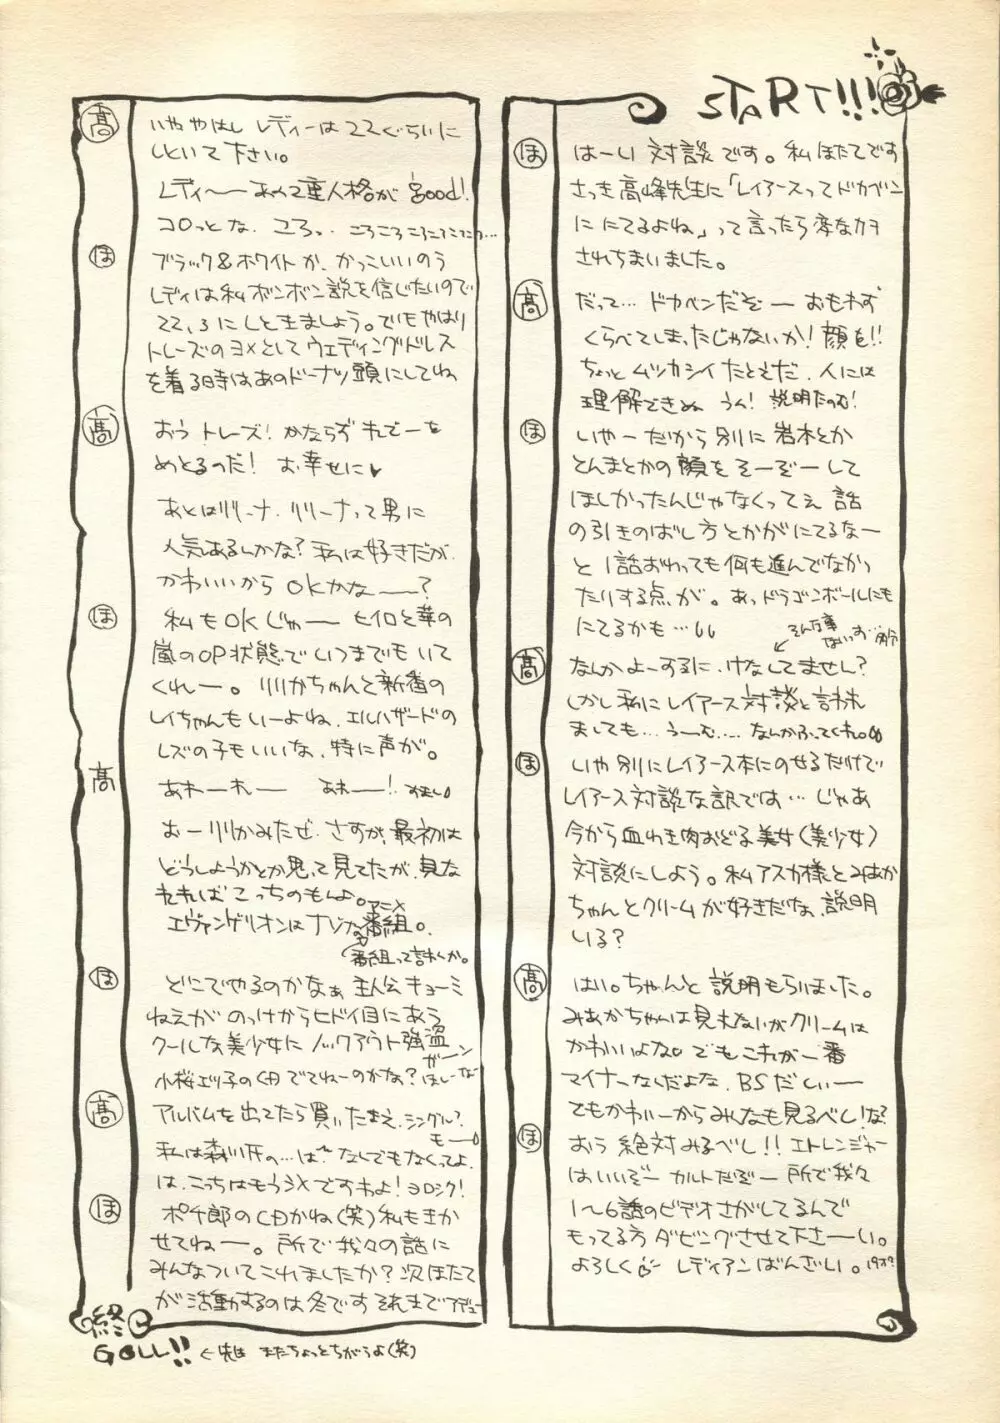 START!!!
ほ はーい 対談です。私ほたてです
さっき高峰先生に「レイアースってドカベン
ににてるよね」って言ったら変なカオ
されちまいました。
高 だって… ドカベンだぞー おもわず
くらべてしまったじゃないか! 顔を!!
ちょっと ムツカシイ たとえだ. 人には
理解できぬ うん! 説明たのむ!
ほ いやーだから別に 岩木とか
とんまとかの顔を そーぞーして
ほしかったんじゃなくってえ 話
の引きのばし方とかがにてるなー
と 1話おわっても何も進んでなかっ
たりする点が。あっドラゴンボールにも
にてるかも…
そんな事ないっす…
高 なんかよーするに、けなしてません?
しかし私に レイアース対談と言われ
ましても… うーむ…. なんかふってくれ。
ほ いや 別にレイアース本にのせるだけで
レイアース対談な訳では… じゃあ
今から血わき肉おどる美女(美少女)
対談にしよう。私アスカ様とみあか
ちゃんとクリームが好きだな、説明
いる?
高 はい。ちゃんと 説明もらいました。
みあかちゃんは見えないがクリームは
かわいいよな。でもこれが一番
マイナーなんだよな. BSだしぃー
でもかわいーからみんなも見るべし!な?
ほ おう 絶対みるべし!! エトレンジャー
はいいぞー カルトだぞー 所で我々
1〜6話のビデオさがしてるんで
もってる方 ダビングさせて下さーい。
よろしく レディアンばんざい。
高 いややはし レディーは22ぐらいに
しといて下さい。
レディ〜 あの2重人格が good!
コロっとな. コろっ. ころころころころころ…
ほ ブラック&ホワイトか、かっこいいのう
レディは私ボンボン説を信じたいので
22,3にしときましょう。でもやはり
トレーズのヨメとして ウェディングドレス
を着る時はあのドーナツ頭にしてね
高 おう トレーズ! かならず れでーを
めとるのだ! お幸せに♥
あとはリリーナ. リリーナって男に
人気あるんかな? 私は好きだが.
かわいいから OKかな――?
ほ 私もOKじゃ―― ヒイロと華の
嵐のOP状態で いつまでも いて
くれー。 リリカちゃんと新番の
レイちゃんもいーよね. エルハザードの
レズの子もいいな、特に声が。
高 あれーれー あれ――!
おーリリカみたぜ. さすが、最初は
どうしようかとか思って見てたが、見な
れれば こっちのもんよ。
エヴァンゲリオンはナゾなアニメ番組。
(番組って言わんか。
ほ どこでやるのかなぁ 主人公 キューミ
ねえが のっけからヒドイ目にあう
クールな美少女に ノックアウト強盗
小桜エツ子のCDでてねーのかな? ほしーな
ガーン
高 アルバムを出てたら買いたまえ、シングル?
もー
私は森川氏の…は" なんでもなくってよ
は、こっちはもうシメですわよ! ヨロシク!
ほ ポチ郎のCDかね(笑) 私もきか
せてねー。所で我々の話に
みんなついてこれましたか? 次ほたて
が活動するのは冬です それまでアデュー
終
GOLL!! く先は またちょっとちがうよ(笑)